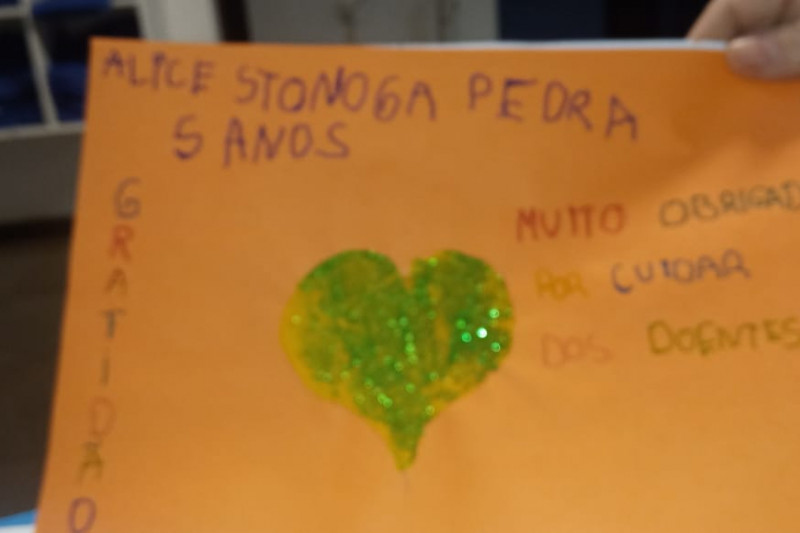 ALICE STONOGA PEDRA
5 ANOS
GRATIDÃO
MUITO OBRIGAD
POR CUIDAR
DOS DOENTES